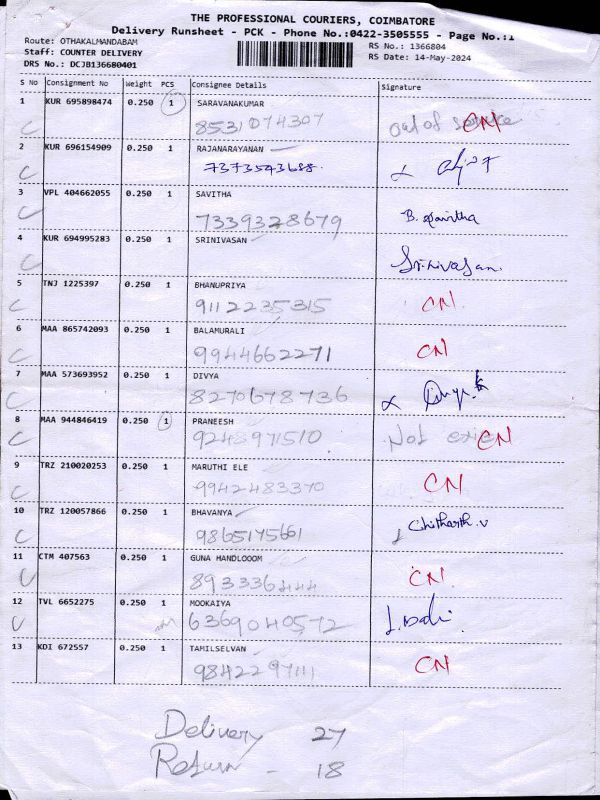 THE PROFESSIONAL COURIERS, COIMBATORE
Delivery Runsheet - PCK - Phone No.:0422-3505555 - Page No.:1
Route: OTHAKALMANDABAM
RS No.: 1366804
Staff: COUNTER DELIVERY
RS Date: 14-May-2024
DRS No.: DCJB136680401
S No Consignment No Weight PCS Consignee Details Signature
1 KUR 695898474 0.250 1 SARAVANAKUMAR
8531074307 out of service CN
2 KUR 696154909 0.250 1 RAJANARAYANAN
7373543688
3 VPL 404662055 0.250 1 SAVITHA
7339328679 B. Savitha
4 KUR 694995283 0.250 1 SRINIVASAN
Srinivasan
5 TNJ 1225397 0.250 1 BHANUPRIYA
9112235315 CN
6 MAA 865742093 0.250 1 BALAMURALI
9944662271 CN
7 MAA 573693952 0.250 1 DIVYA
8270678736
8 MAA 944846419 0.250 1 PRANEESH
9248971510 Not CN
9 TRZ 210020253 0.250 1 MARUTHI ELE
9942483370 CN
10 TRZ 120057866 0.250 1 BHAVANYA
9865175661 Chitharth.v
11 CTM 407563 0.250 1 GUNA HANDLOOOM
893336444 CN
12 TVL 6652275 0.250 1 MOOKAIYA
6369040572
13 KDI 672557 0.250 1 TAMILSELVAN
9842297111 CN
Delivery 27
Return - 18